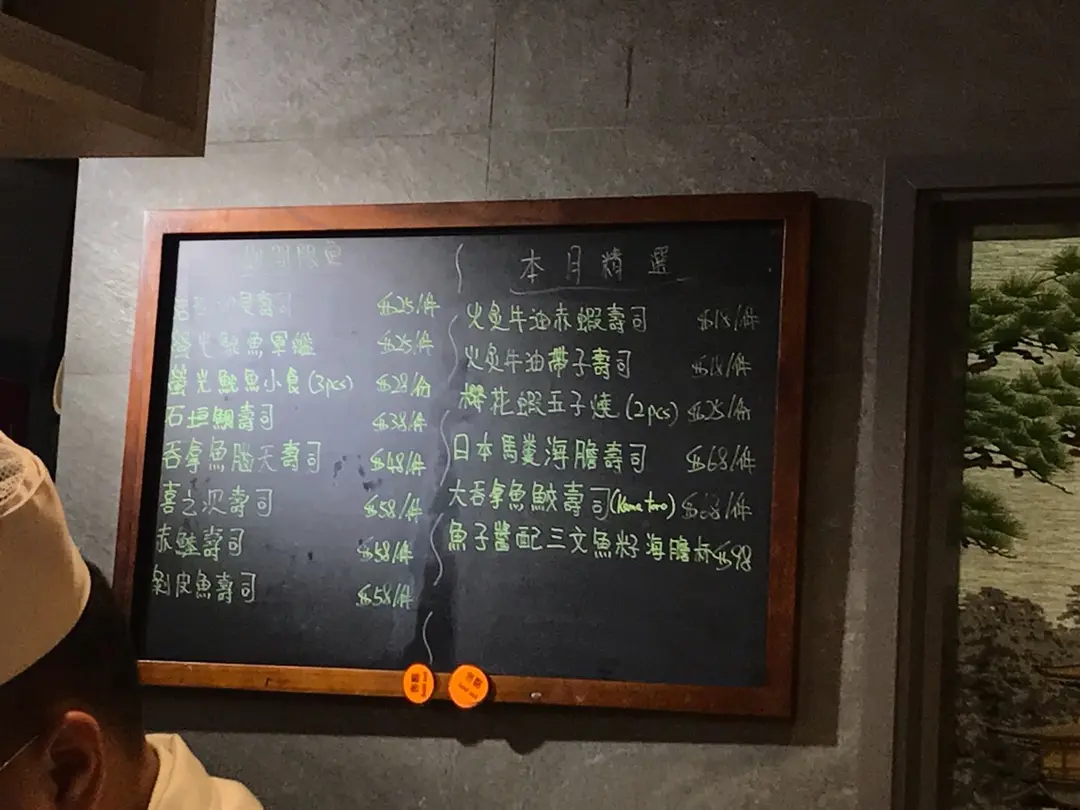 期間限
壽司 $25/件
魚軍艦 $25/件
螢光魷魚小食(3pcs) $28/份
石垣鯛壽司 $38/件
吞拿魚腦天壽司 $48/件
喜之次壽司 $58/件
赤鯥壽司 $58/件
剝皮魚壽司 $58/件
本月精選
火炙牛油赤蝦壽司 $18/件
火炙牛油帶子壽司 $18/件
櫻花蝦玉子燒(2pcs) $25/份
日本馬糞海膽壽司 $68/件
大吞拿魚鮫壽司(Kama toro) /件
魚子醬配三文魚籽海膽杯 $98